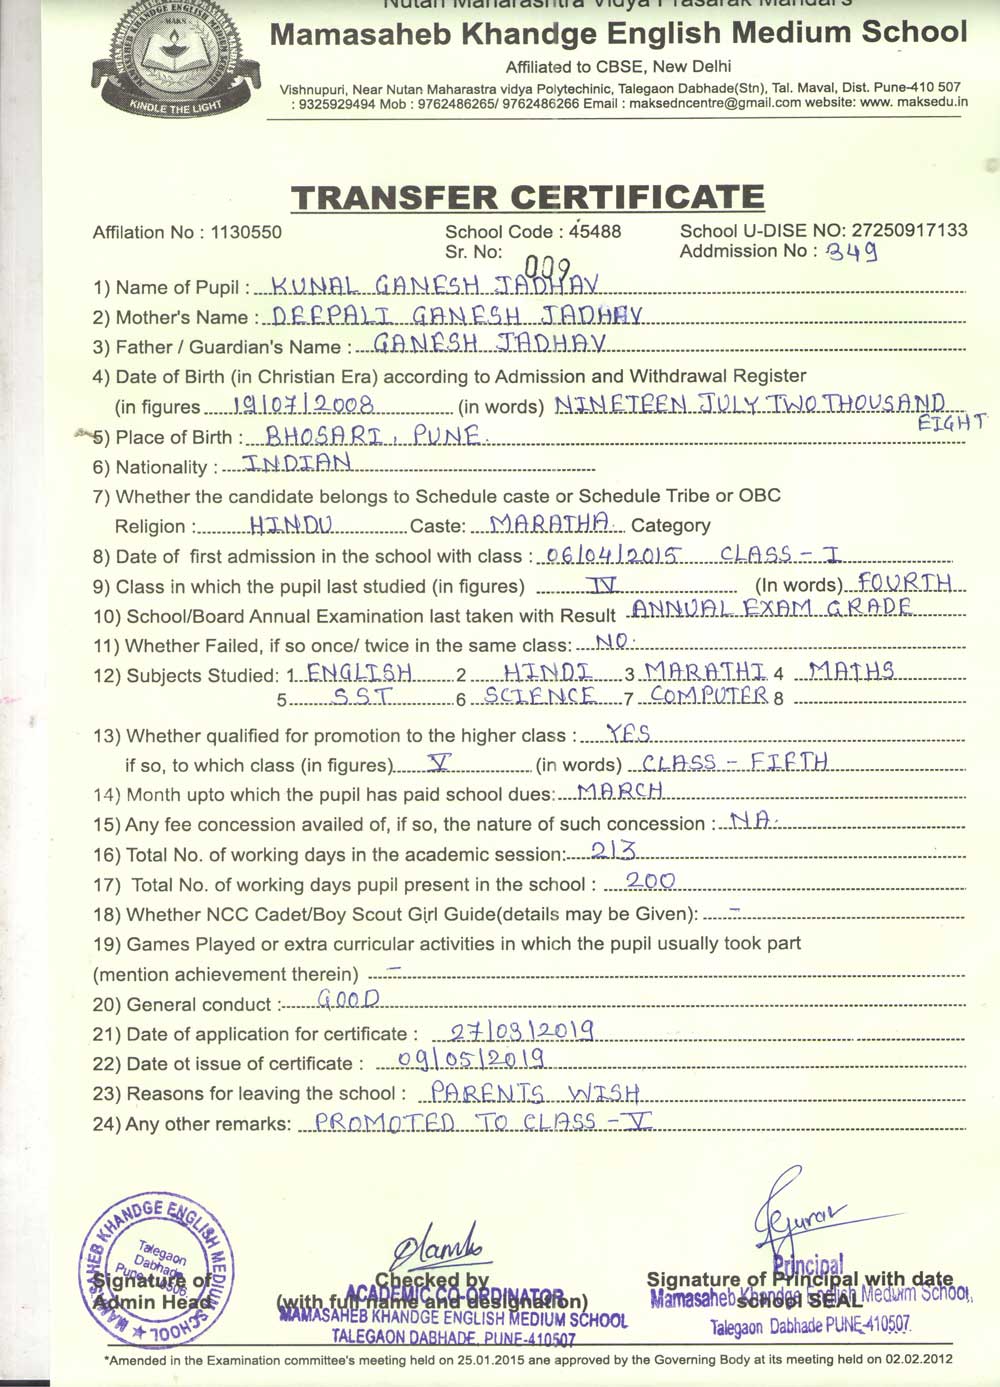 Nutan Maharashtra Vidya Prasarak Mandal's
Mamasaheb Khandge English Medium School
Affiliated to CBSE, New Delhi
Vishnupuri, Near Nutan Maharastra vidya Polytechinic, Talegaon Dabhade(Stn), Tal. Maval, Dist. Pune-410 507
: 9325929494 Mob : 9762486265/ 9762486266 Email : maksedncentre@gmail.com website: www. maksedu.in
MAKS
KINDLE THE LIGHT
TRANSFER CERTIFICATE
Affilation No : 1130550 School Code : 45488 School U-DISE NO: 27250917133
Sr. No: 009 Addmission No : 349
1) Name of Pupil : KUNAL GANESH JADHAV
2) Mother's Name : DEEPALI GANESH JADHAV
3) Father / Guardian's Name : GANESH JADHAV
4) Date of Birth (in Christian Era) according to Admission and Withdrawal Register
(in figures 19/07/2008 (in words) NINETEEN JULY TWO THOUSAND
EIGHT
5) Place of Birth : BHOSARI, PUNE.
6) Nationality : INDIAN
7) Whether the candidate belongs to Schedule caste or Schedule Tribe or OBC
Religion : HINDU Caste: MARATHA Category
8) Date of first admission in the school with class : 06/04/2015 CLASS - I
9) Class in which the pupil last studied (in figures) IV (In words) FOURTH
10) School/Board Annual Examination last taken with Result ANNUAL EXAM GRADE
11) Whether Failed, if so once/ twice in the same class: NO.
12) Subjects Studied: 1 ENGLISH 2 HINDI 3 MARATHI 4 MATHS
5 SST 6 SCIENCE 7 COMPUTER 8
13) Whether qualified for promotion to the higher class : YES
if so, to which class (in figures) V (in words) CLASS - FIFTH
14) Month upto which the pupil has paid school dues: MARCH
15) Any fee concession availed of, if so, the nature of such concession : NA.
16) Total No. of working days in the academic session: 213
17) Total No. of working days pupil present in the school : 200
18) Whether NCC Cadet/Boy Scout Girl Guide(details may be Given): -
19) Games Played or extra curricular activities in which the pupil usually took part
(mention achievement therein) -
20) General conduct : GOOD
21) Date of application for certificate : 27/03/2019
22) Date ot issue of certificate : 09/05/2019
23) Reasons for leaving the school : PARENTS WISH
24) Any other remarks: PROMOTED TO CLASS - V
MAMASAHEB KHANDGE ENGLISH MEDIUM SCHOOL
Talegaon
Dabhade
Signature of
Admin Head
Checked by
(with full name and designation)
ACADEMIC CO-ORDINATOR
MAMASAHEB KHANDGE ENGLISH MEDIUM SCHOOL
TALEGAON DABHADE, PUNE-410507
Principal
Signature of Principal with date
school SEAL
Mamasaheb Khandge English Medium School,
Talegaon Dabhade PUNE-410507.
*Amended in the Examination committee's meeting held on 25.01.2015 ane approved by the Governing Body at its meeting held on 02.02.2012